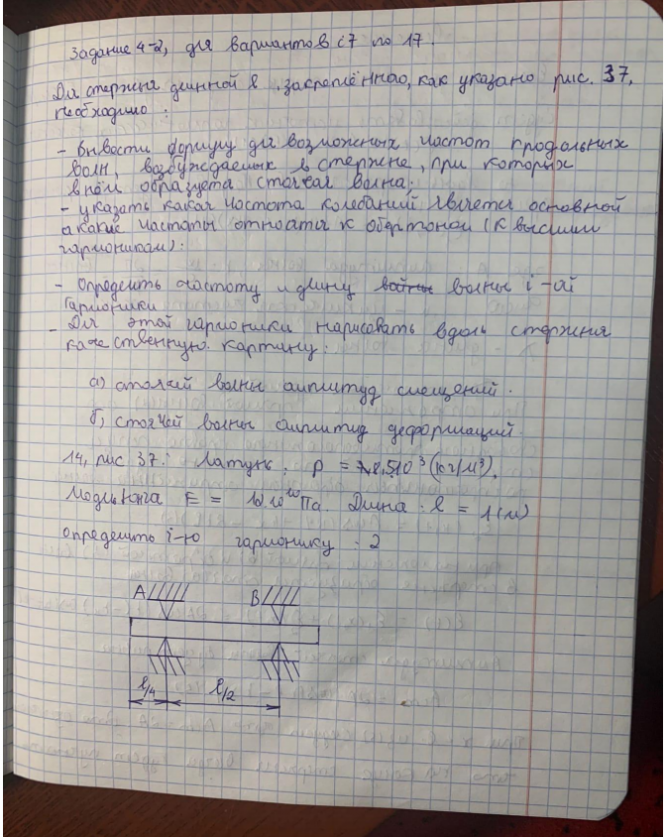 Задание 4-2, для вариантов с 7 по 17.
Для стержня длинной l, закреплённого, как указано рис. 37,
необходимо:
- вывести формулу для возможных частот продольных
волн, возбуждаемых в стержне, при которых
в нём образуется стоячая волна;
- указать какая частота колебаний является основной
а какие частоты относятся к обертонам (к высшим
гармоникам):
- Определить частоту и длину волны i-ой
Гармоники
- Для этой гармоники нарисовать вдоль стержня
качественную картину:
а) стоячей волны амплитуд смещений.
б) стоячей волны амплитуд деформаций.
14, рис 37: Латунь. ρ = 8.5 10³ (кг/м³).
Модуль Юнга E = 10·10¹⁰ Па. Длина: l = 1(м)
определить i-ю гармонику: 2
A B
l/4 l/2